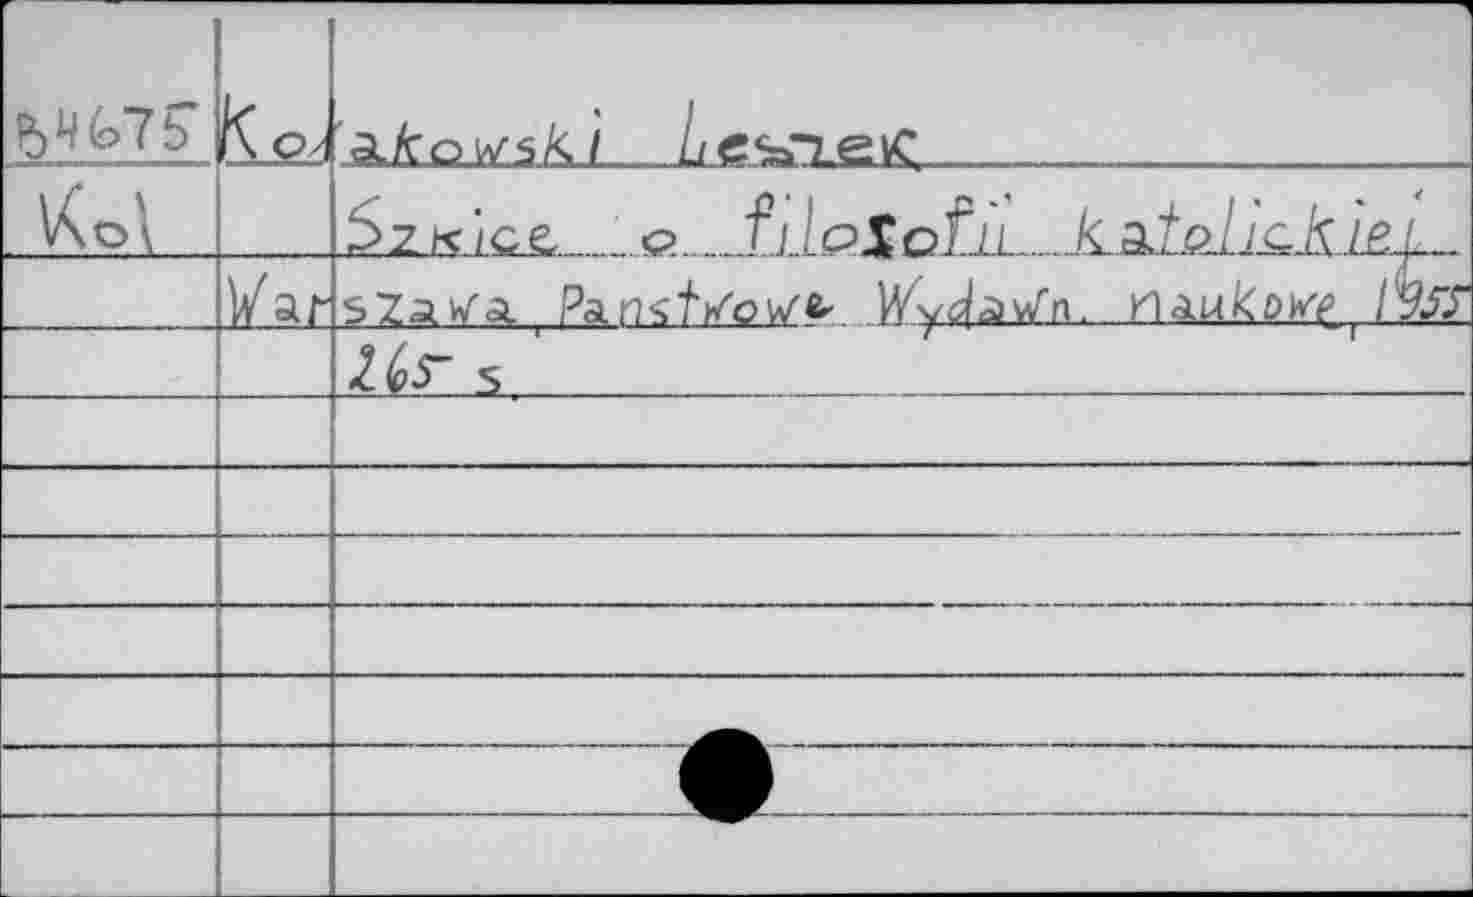 B4675 Kołakowski Leszek
Kol Szkice o filozofii katolickiej
Warszawa, Państwowe Wydawn. naukowe, 1955
265 s.